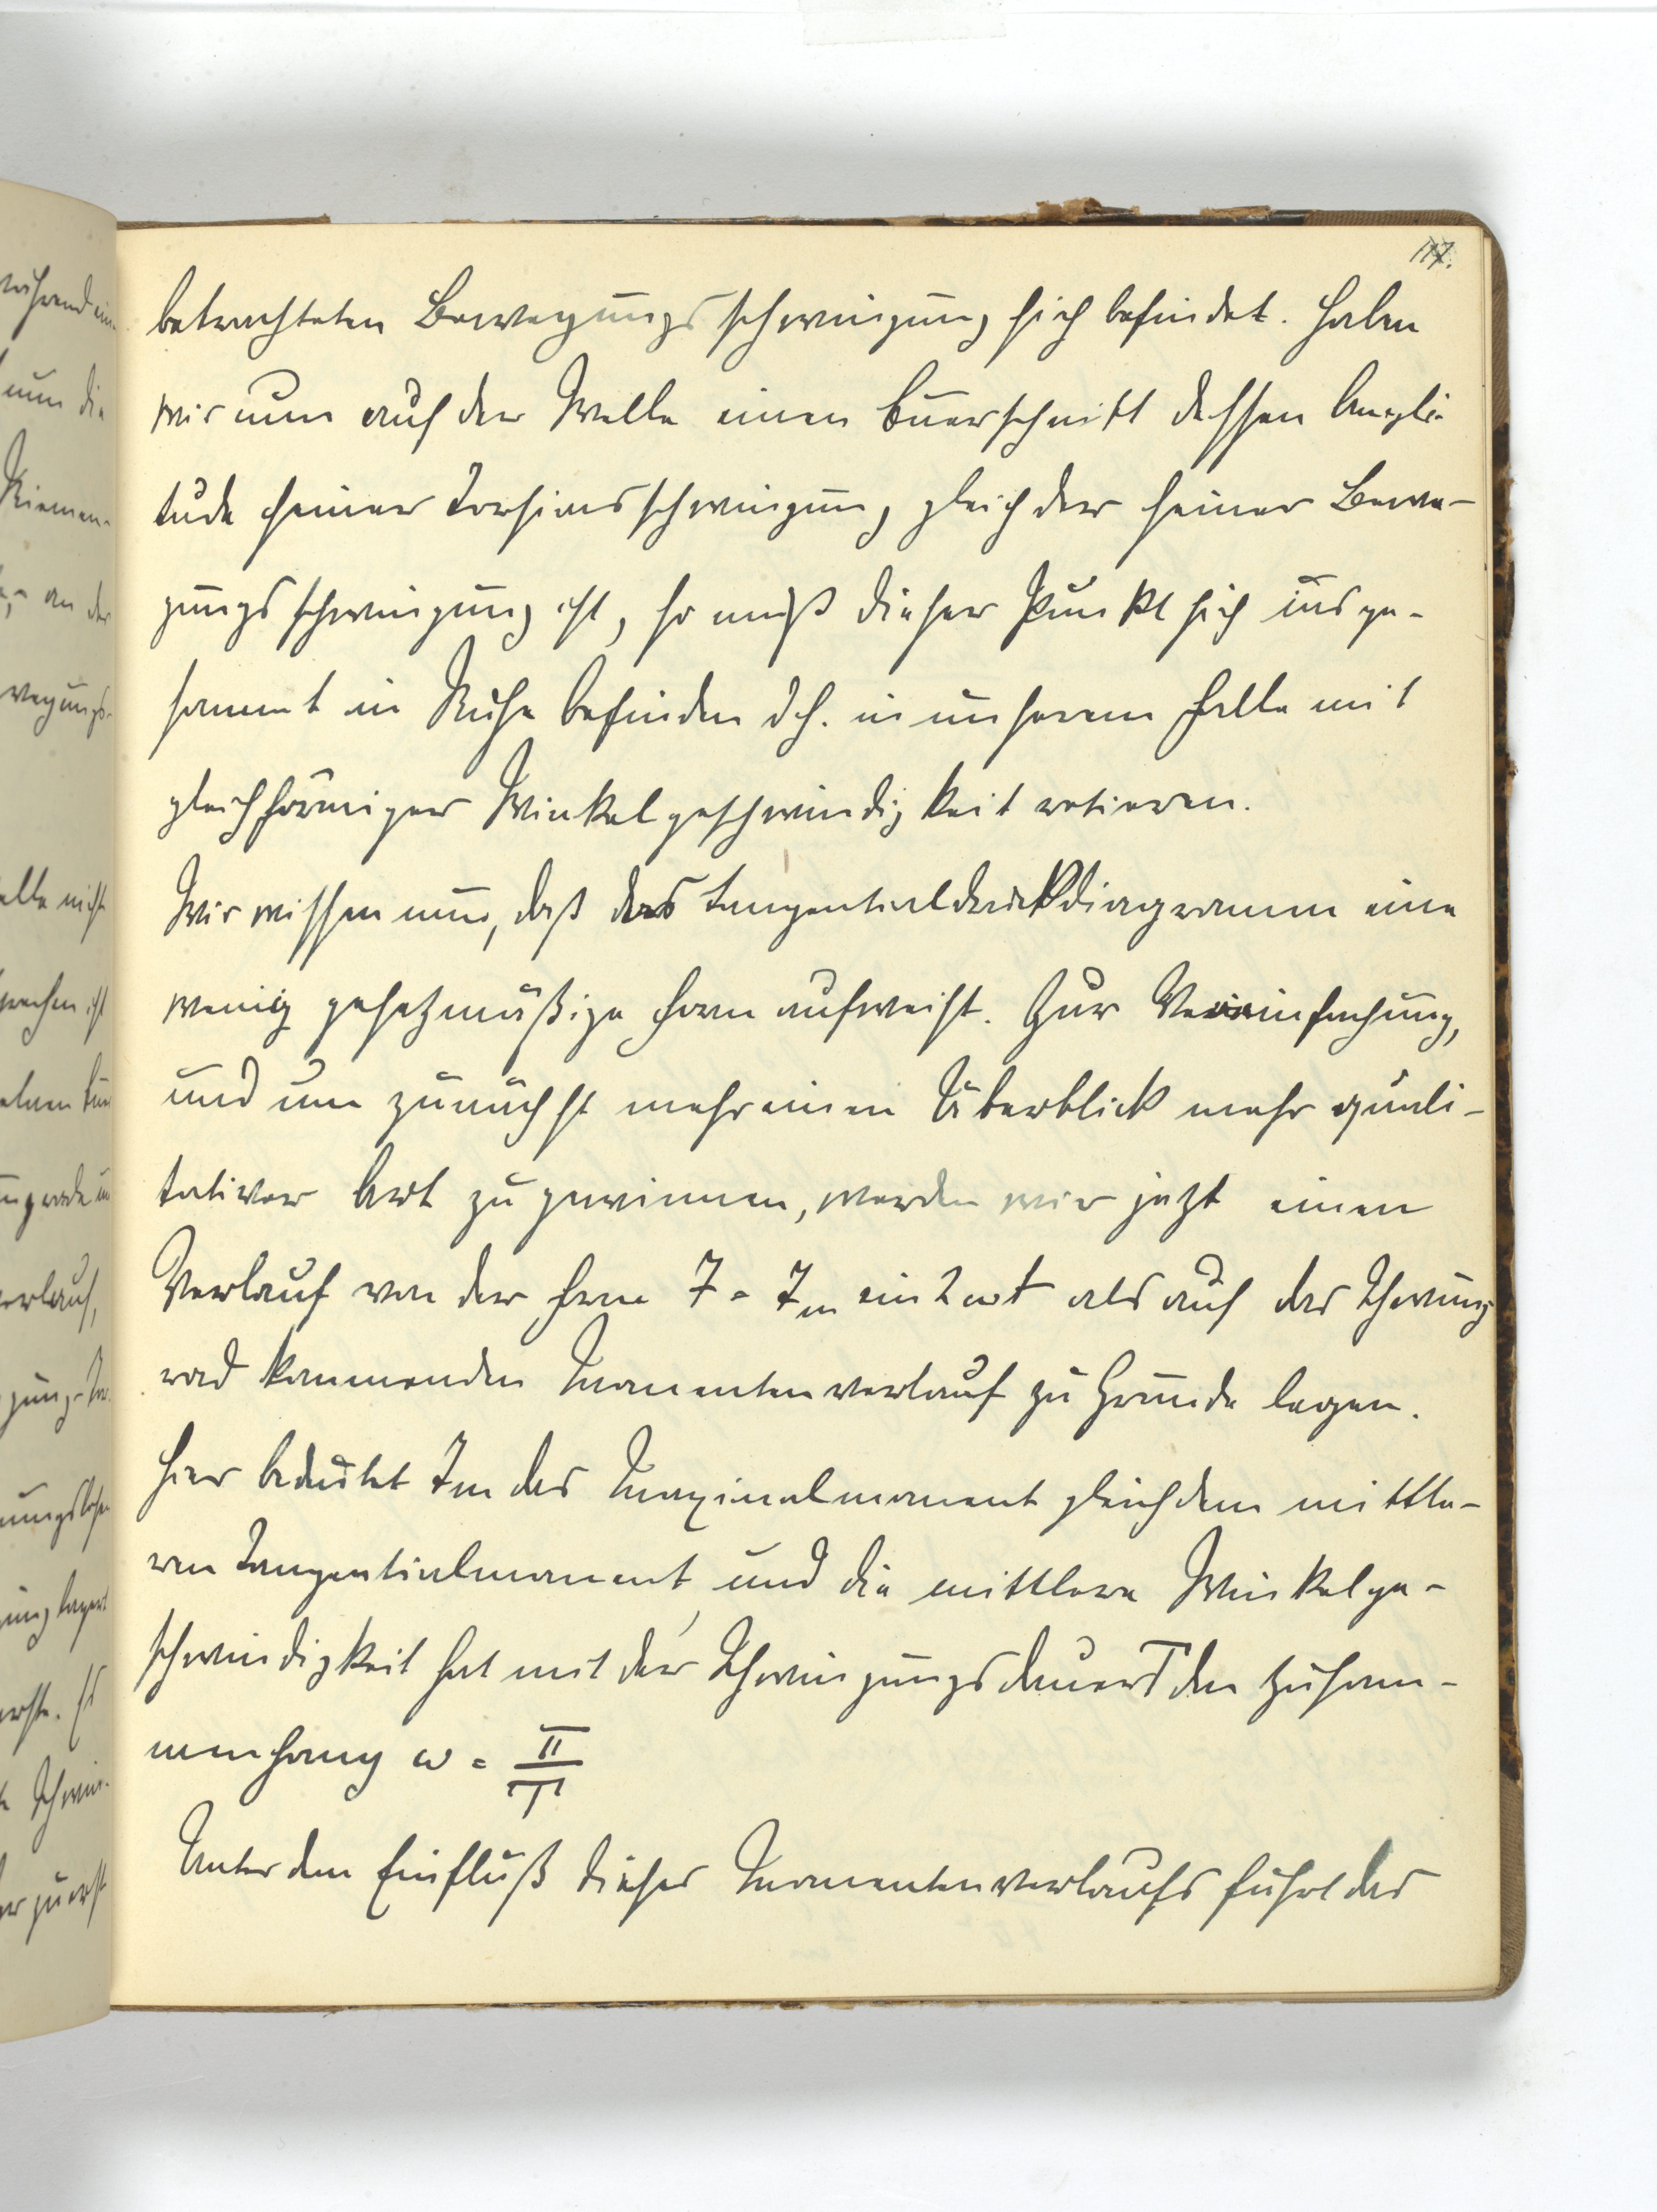 117.
betrachteten Bewegungsschwingung sich befindet. Haben
wir nun auf der Welle einen Querschnitt dessen Ampli-
tude seiner Torsionsschwingung gleich der seiner Bewe-
gungsschwingung ist, so muß dieser Punkt sich insge-
sammt in Ruhe befinden d.h. in unserem Falle mit
gleichförmiger Winkelgeschwindigkeit rotieren.
Wir wissen nun, daß das Tangentialdruckdiagramm eine
wenig gesetzmäßige Form aufweist. Zur Vereinfachung,
und um zunächst mehr einen Überblick mehr quali-
tativer Art zu gewinnen, werden wir jetzt einen
Verlauf von der Form J = Jm sin 2 ωt als auf das Schwung
rad kommenden Momentenverlauf zu Grunde legen.
Hier bedeutet Jm das Maximalmoment gleich dem mittle-
ren Tangentialmoment, und die mittlere Winkelge-
schwindigkeit hat mit der Schwingungsdauer T den Zusam-
menhang ω = π/T
Unter dem Einfluß dieses Momentenverlaufs führt das
während ein
nun die
Riemen-
an der
wegungs-
elle nicht
sprechen ist
verlauf,
gung-
nungslose
ung lagert
erste. Es
Schwin-
er zuerst